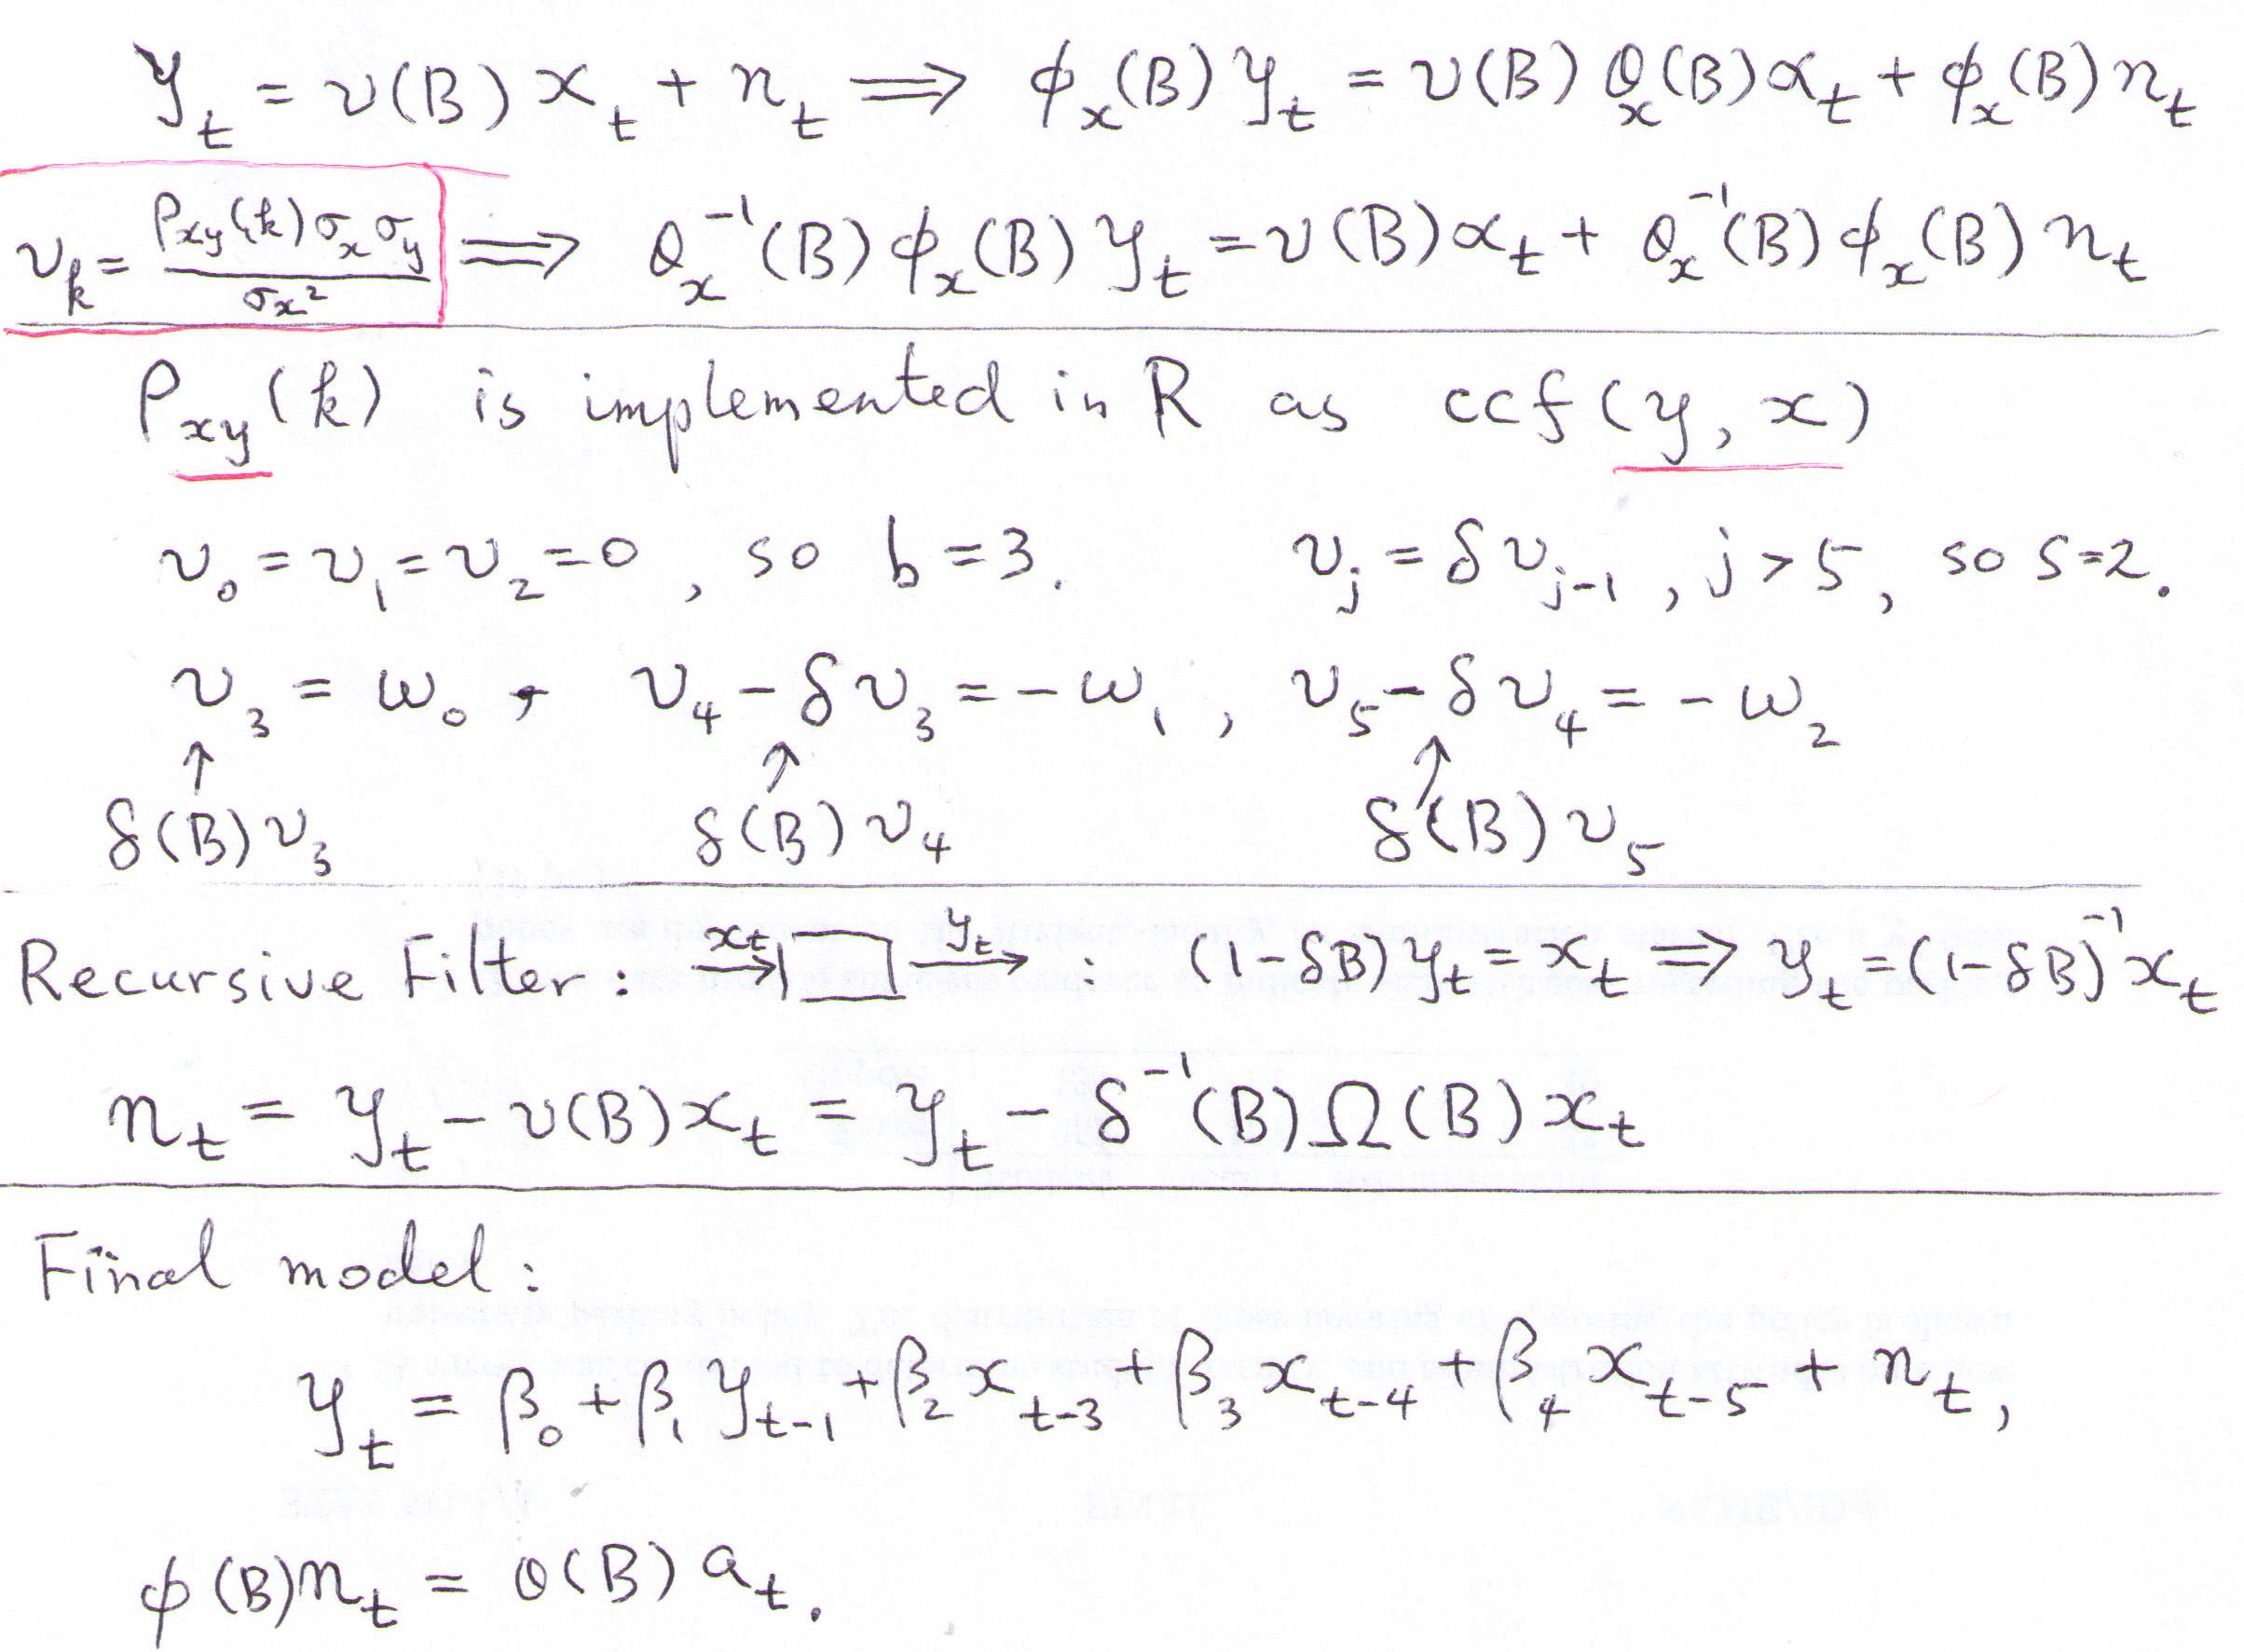 y_t = v(B) x_t + n_t ⟹ ϕ_x(B) y_t = v(B) θ_x(B) α_t + ϕ_x(B) n_t
v_k = ρ_xy(k) σ_x σ_y / σ_x² ⟹ θ_x⁻¹(B) ϕ_x(B) y_t = v(B) α_t + θ_x⁻¹(B) ϕ_x(B) n_t
ρ_xy(k) is implemented in R as ccf(y, x)
v_0 = v_1 = v_2 = 0, so b = 3. v_j = δ v_{j-1}, j > 5, so s = 2.
v_3 = ω_0, v_4 - δ v_3 = -ω_1, v_5 - δ v_4 = -ω_2
↑ ↑ ↑
δ(B) v_3 δ(B) v_4 δ(B) v_5
Recursive Filter: x_t → □ y_t → : (1-δB) y_t = x_t ⟹ y_t = (1-δB)⁻¹ x_t
n_t = y_t - v(B) x_t = y_t - δ⁻¹(B) Ω(B) x_t
Final model:
y_t = β_0 + β_1 y_{t-1} + β_2 x_{t-3} + β_3 x_{t-4} + β_4 x_{t-5} + n_t,
ϕ(B) n_t = θ(B) a_t.